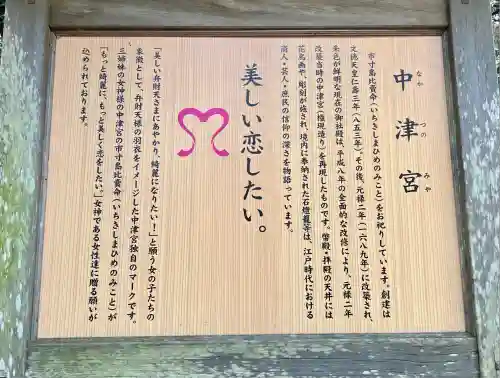 中津宮
なか つの みや
市寸島比賣命(いちきしまひめのみこと)をお祀りしています。創建は
文徳天皇仁寿三年(八五三年)。その後、元禄二年(一六八九年)に改築され、
朱色が鮮明な現在の御社殿は、平成八年の全面的な改修により、元禄二年
改築当時の中津宮(権現造り)を再現したものです。幣殿・拝殿の天井には
花鳥画や、彫刻が施され、境内に奉納された石燈籠等は、江戸時代における
商人・芸人・庶民の信仰の深さを物語っています。
美しい恋したい。
「美しい弁財天さまにあやかり、綺麗になりたい!」と願う女の子たちの
象徴として、弁財天様の羽衣をイメージした中津宮独自のマークです。
三姉妹の女神様の中津宮の市寸島比賣命(いちきしまひめのみこと)が
「もっと綺麗に、もっと美しく恋をしたい。」女神である女性達に贈る願いが
込められております。